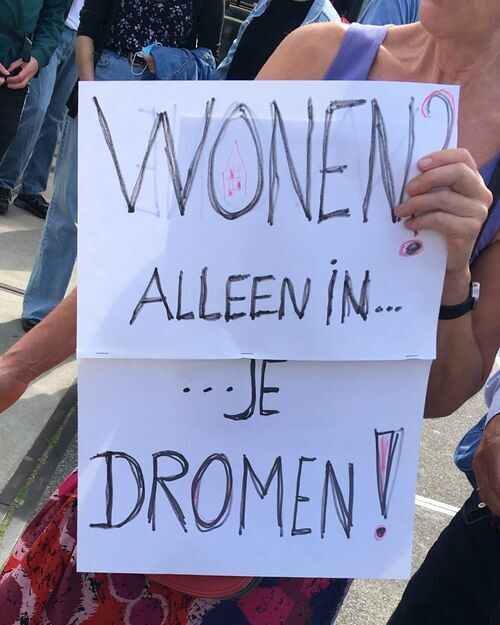 WONEN?
ALLEEN iN...
...JE
DROMEN!